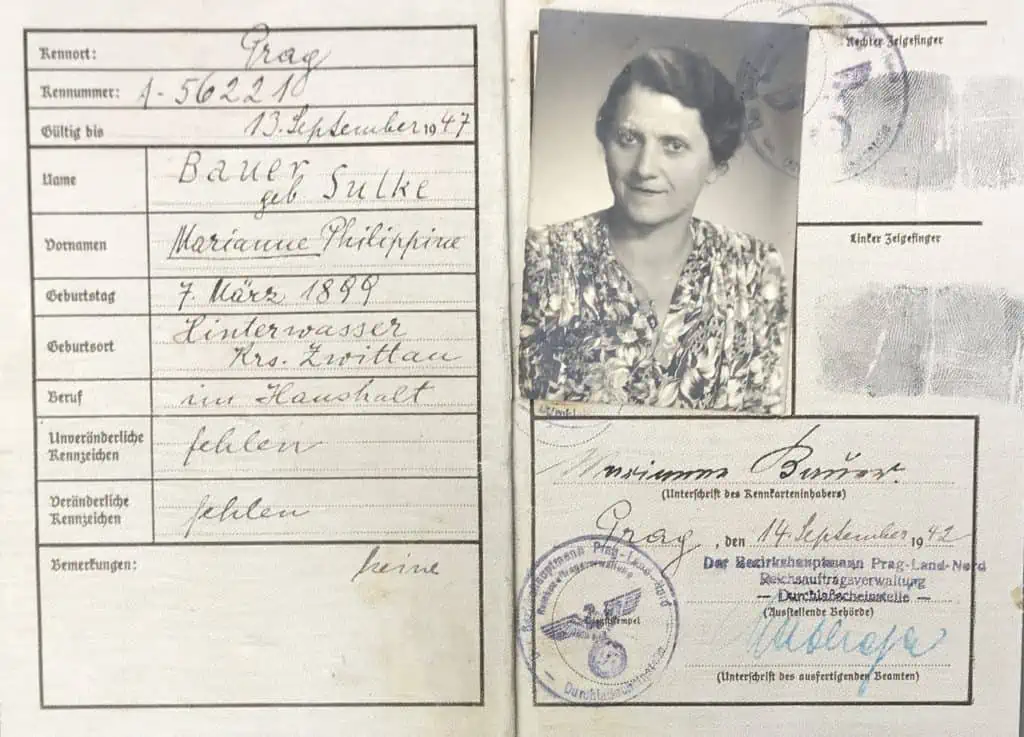 Kennort: Prag
Kennummer: A-562210
Gültig bis 13. September 1947
Name Bauer
geb Sulke
Vornamen Marianne Philippine
Geburtstag 7. März 1899
Geburtsort Hinterwasser
Krs. Zwittau
Beruf im Haushalt
Unveränderliche Kennzeichen fehlen
Veränderliche Kennzeichen fehlen
Bemerkungen: keine
Rechter Zeigefinger
Linker Zeigefinger
Marianne Bauer.
(Unterschrift des Kennkarteninhabers)
Prag, den 14. September 1942
Der Bezirkshauptmann Prag-Land-Nord
Reichsauftragsverwaltung
— Durchlaßscheinstelle —
(Ausstellende Behörde)
(Unterschrift des ausfertigenden Beamten)
Bezirkshauptmann Prag-Land-Nord
Reichsauftragsverwaltung
Dienststempel
— Durchlaßscheinstelle —